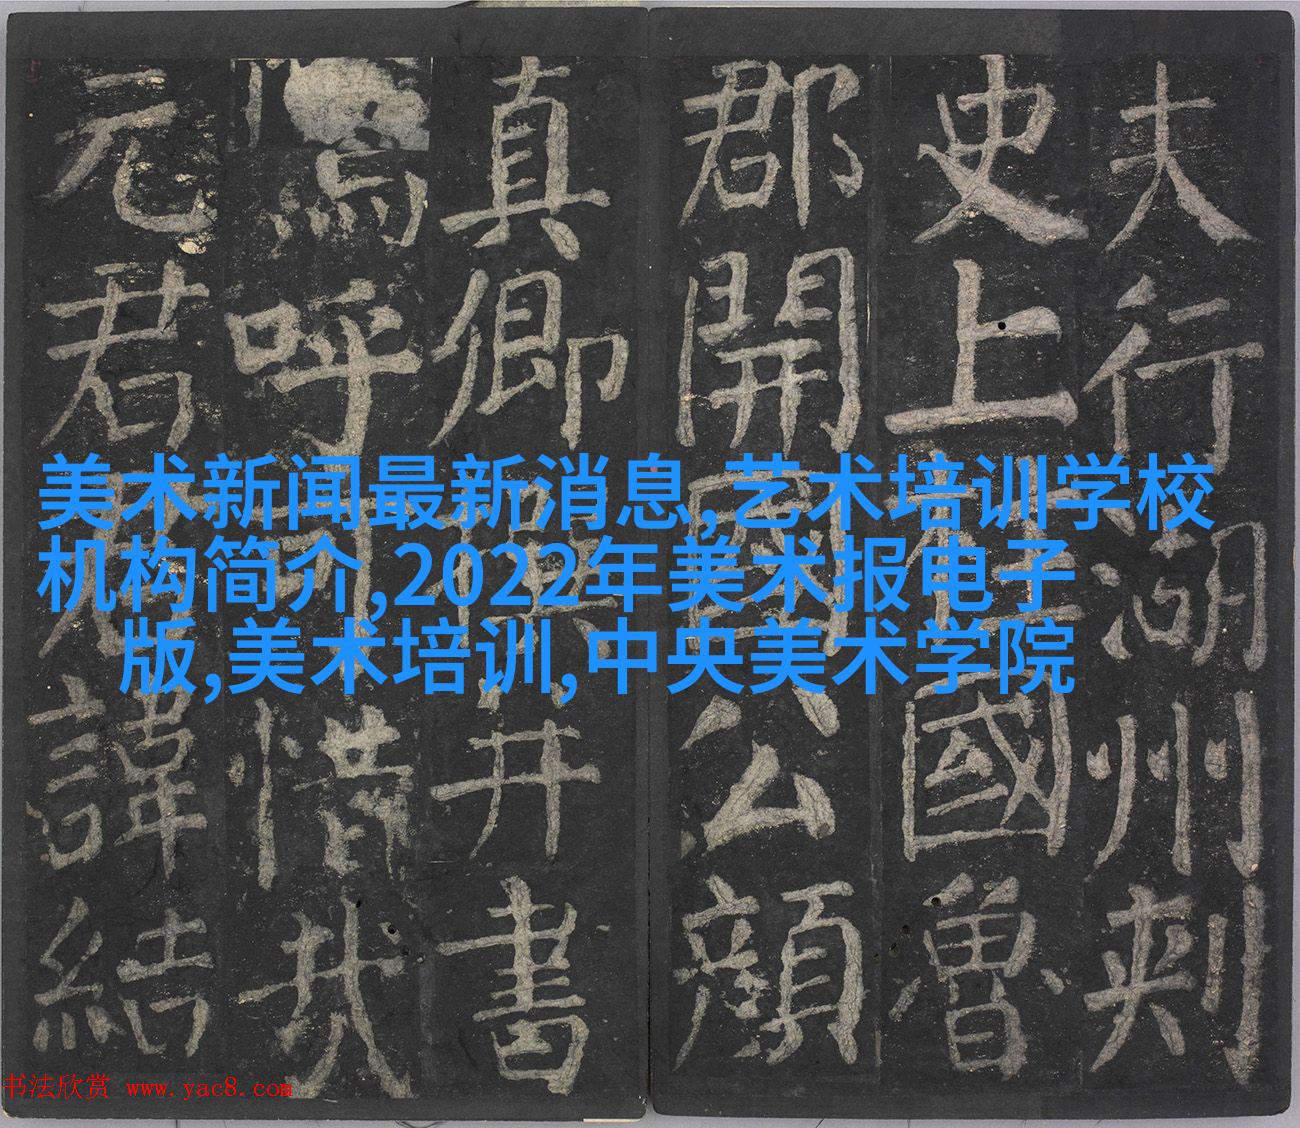 夫行湖州刾
史上柱國魯
郡開國公顔
真卿撰并書
嗚呼惜哉
元君君諱結
美术新闻最新消息,艺术培训学校
机构简介,2022年美术报电子
版,美术培训,中央美术学院
书法欣赏 www.yac8.com